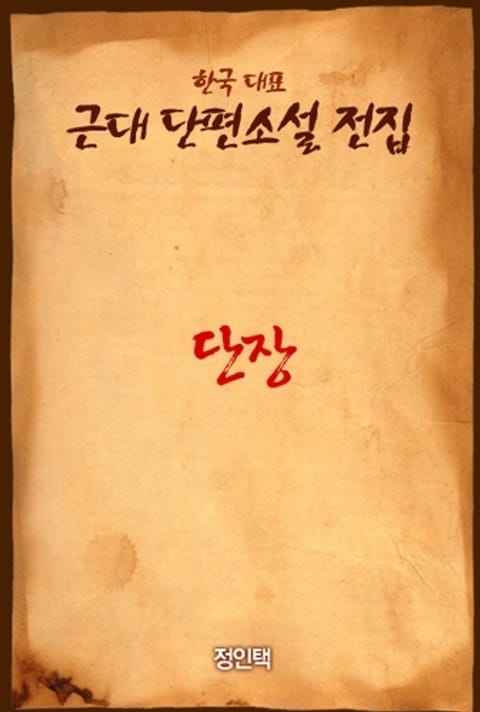 한국 대표
근대 단편소설 전집
단장
정인택